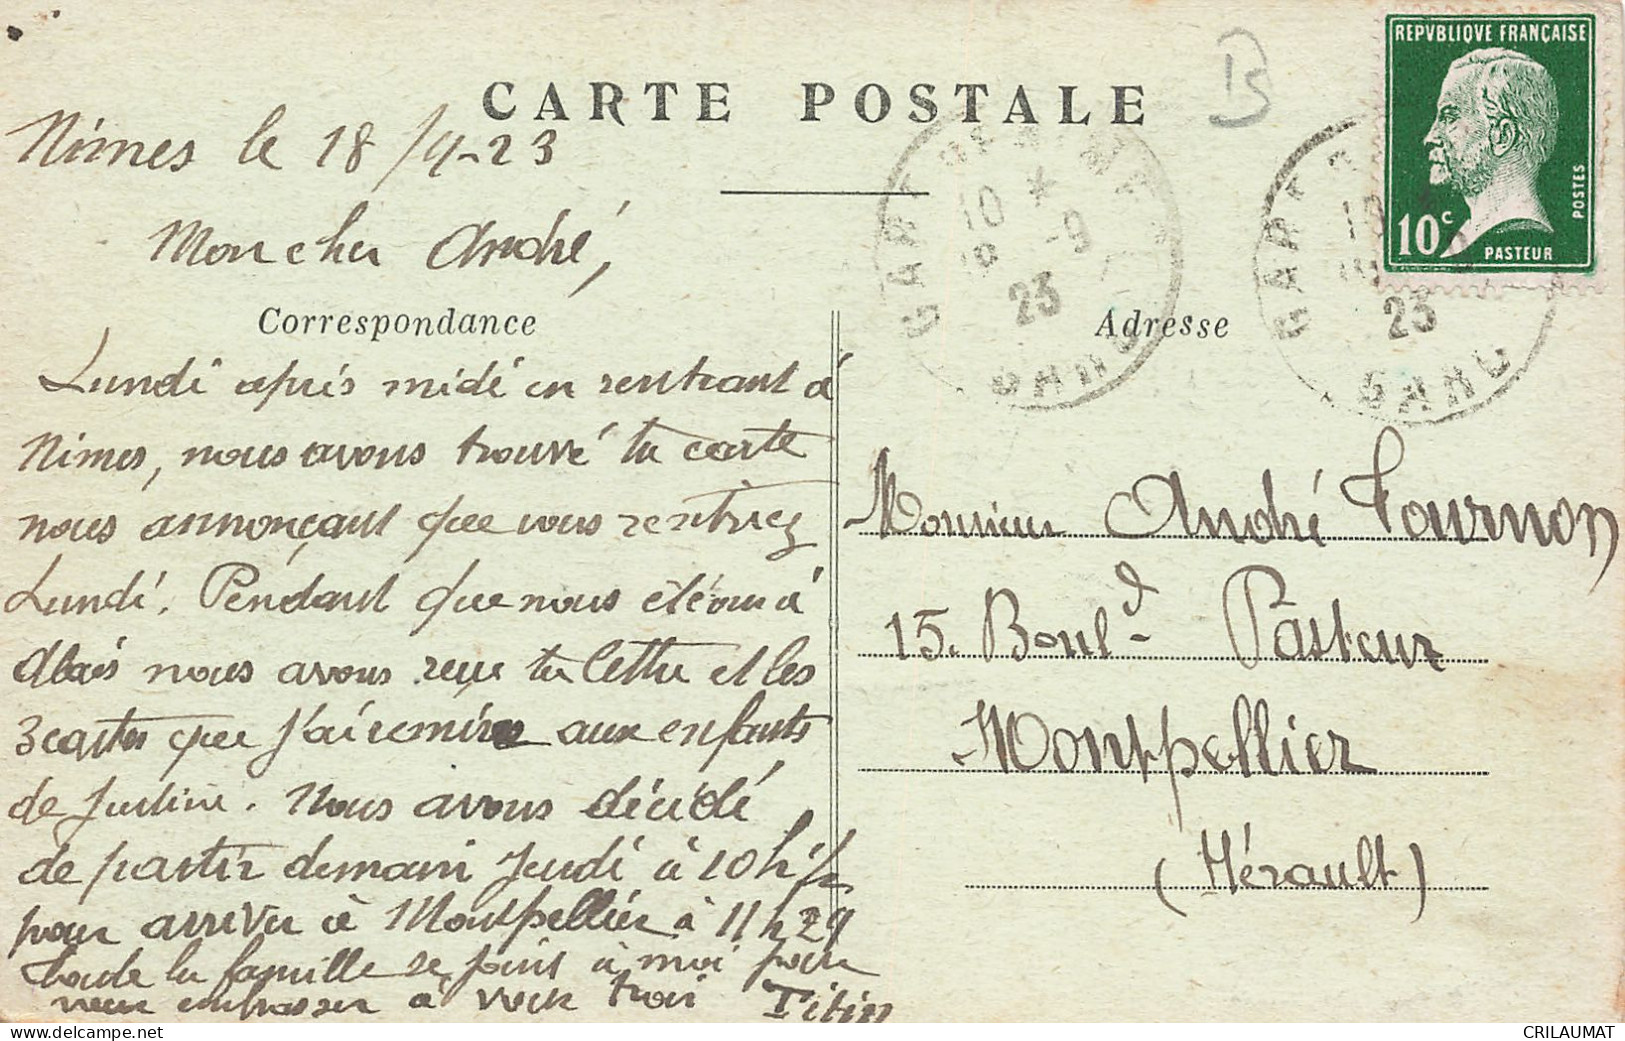 CARTE POSTALE
REPVBLIQVE FRANÇAISE
10c
PASTEUR
POSTES
B
Nimes le 18/9-23
Mon cher André,
Correspondance
Lundi après midi en rentrant à
Nimes, nous avons trouvé ta carte
nous annonçant que vous rentriez
Lundi. Pendant que nous étions à
Alais nous avons reçu ta lettre et les
3 cartes que j'ai remises aux enfants
de Justine. Nous avons décidé
de partir demain Jeudi à 10h 1/2
pour arriver à Montpellier à 11h29
toute la famille se joint à moi pour
vous embrasser à vous trois Titin
GARE DE NIMES
10 *
18 -9
23
GARD
Adresse
GARE
10 *
18
23
GARD
Monsieur André Tournon
15. Boul^d Pasteur
Montpellier
(Hérault)
www.delcampe.net
CRILAUMAT